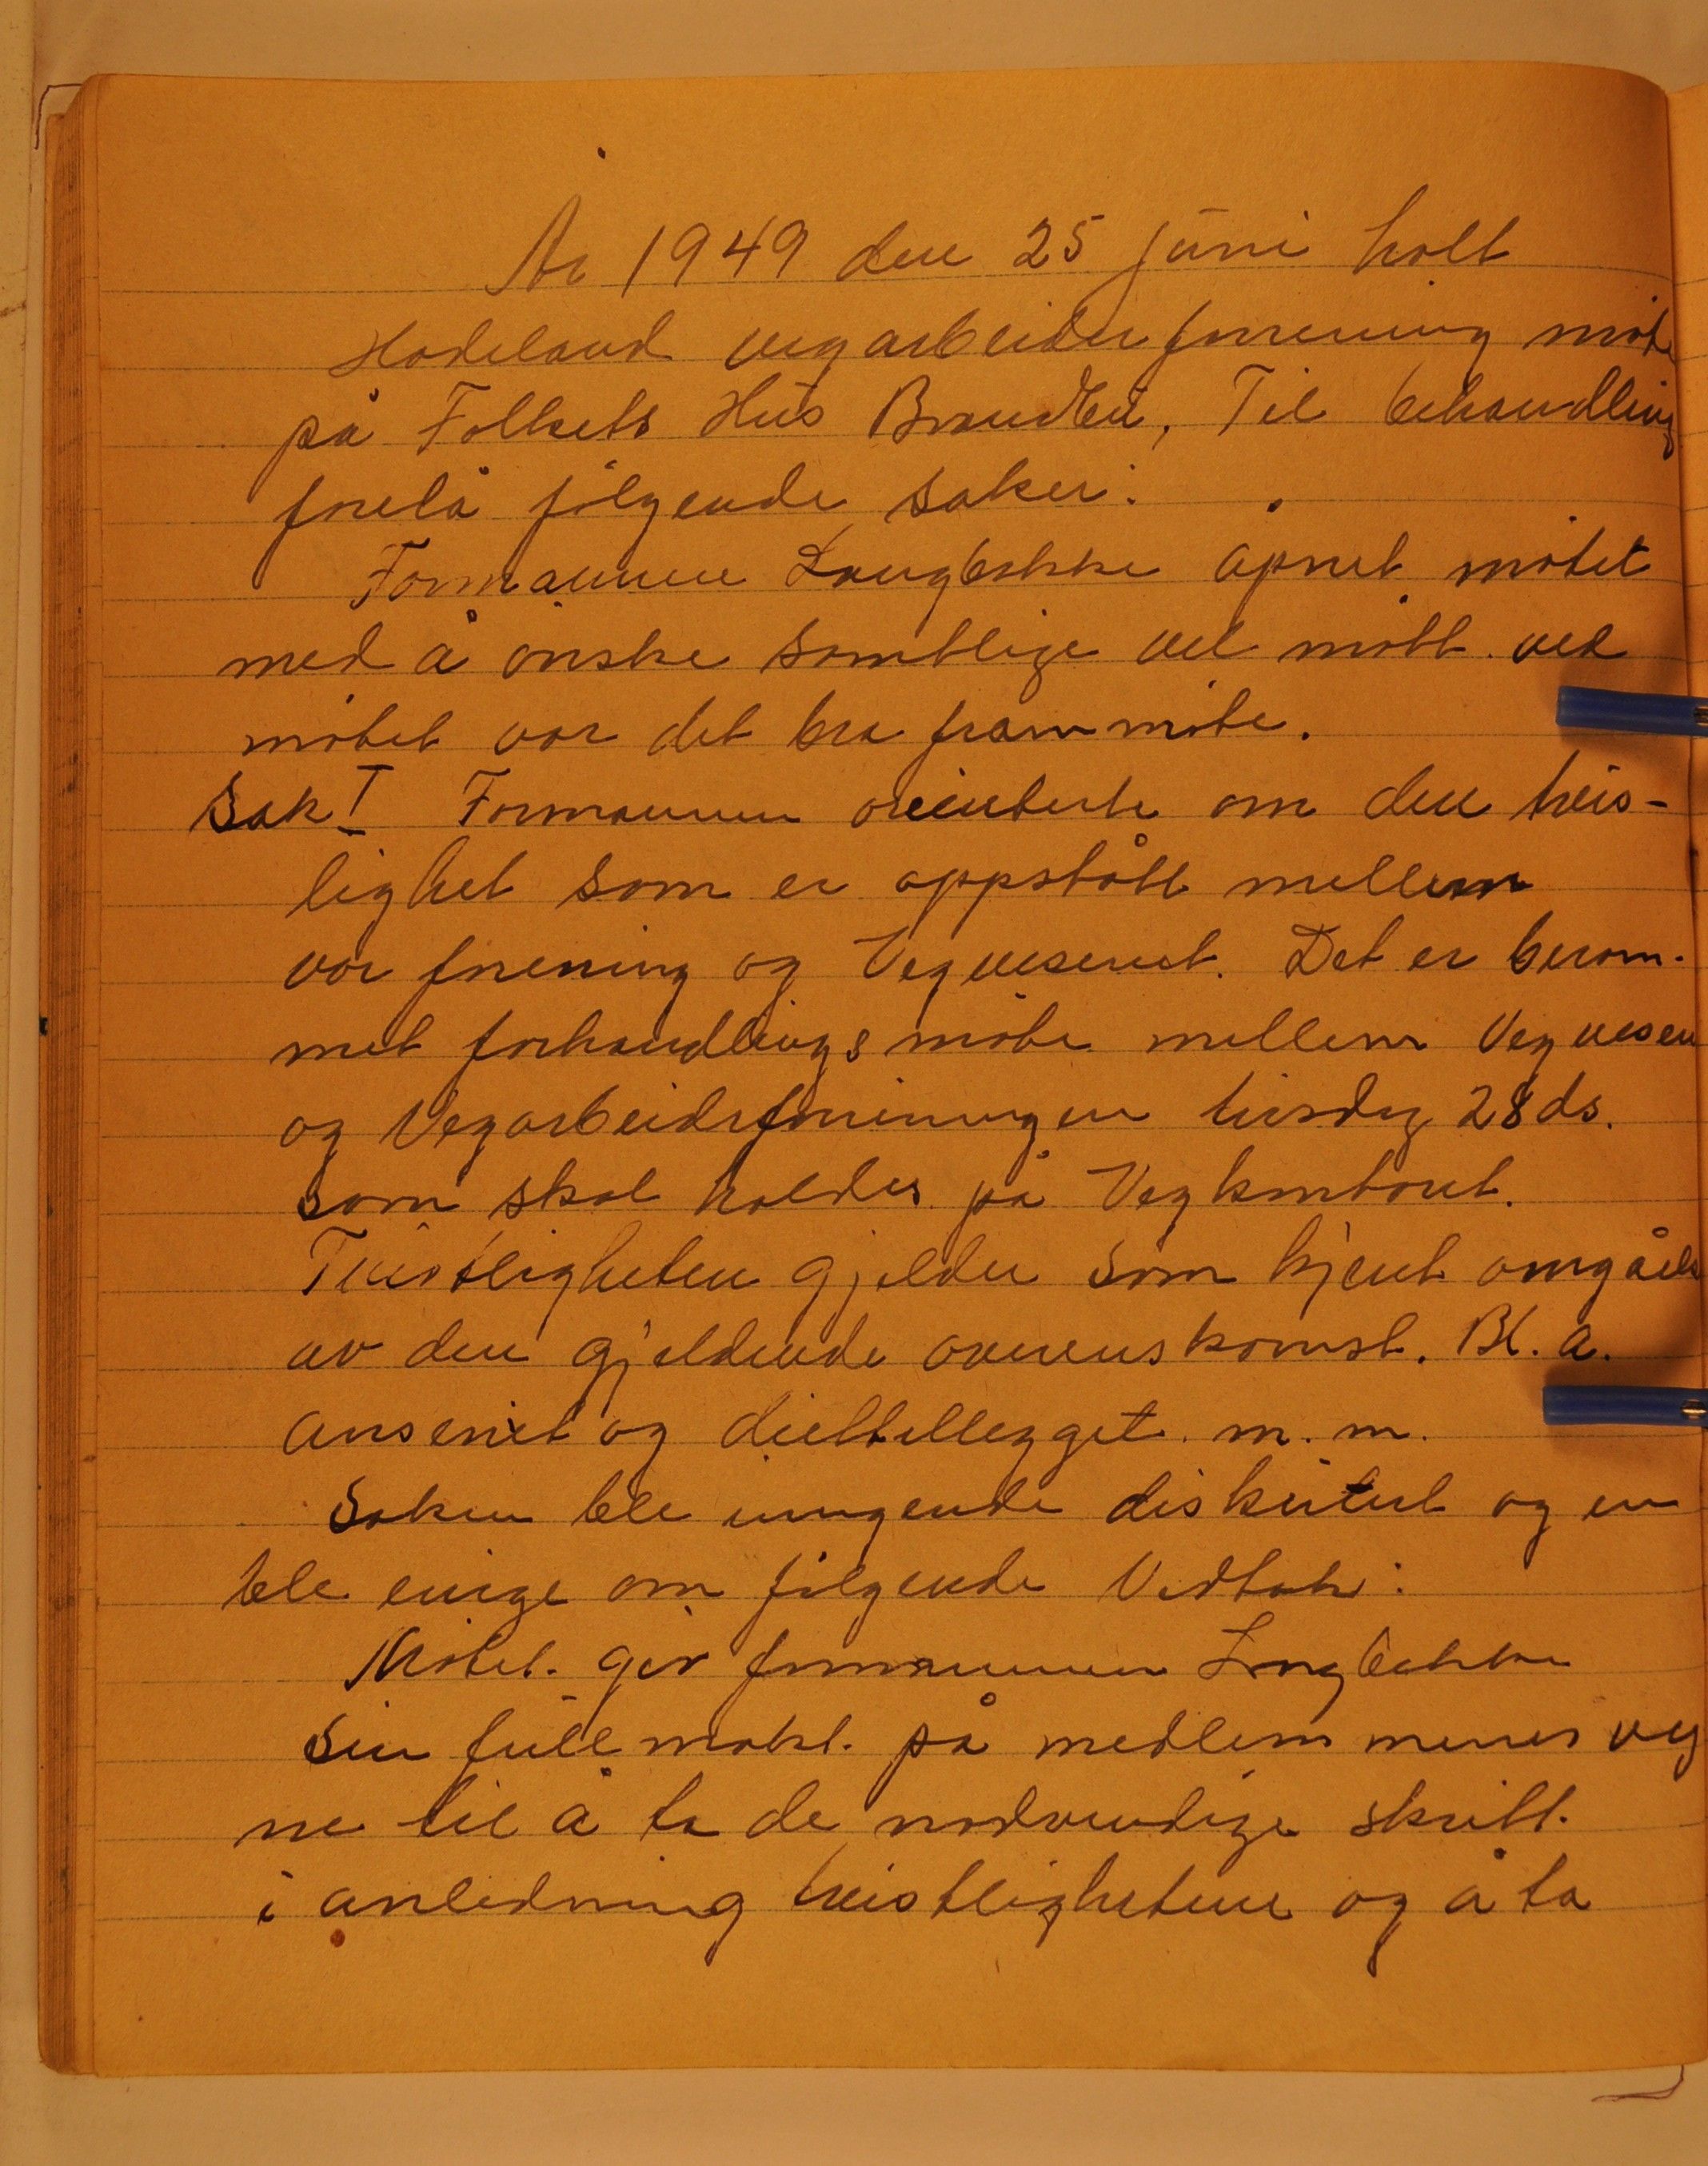 År 1949 den 25 juni holt
Hadeland vegarbeiderforening møte
på Folkets Hus Brandbu, Til behandling
forelå følgende saker:
Formannen Langbakke åpnet møtet
med å ønske samtlige vel møtt. ved
møtet var det bra frammøte.
Sak I Formannen orienterte om den tvis-
lighet som er oppstått mellem
vor forening og Vegvesenet. Det er beram-
met forhandlingsmøte mellem Vegvesen
og Vegarbeiderforeningen tirsdag 28 ds.
som skal holdes på Vegkontoret.
Tvistligheten gjelder som kjent omgåels
av den gjeldende overenskomst. Bl. a.
anseniet og diettillegget. m. m.
Saken ble inngende diskutert og en
ble enige om følgende Vedtak:
Møtet. gir formannen Langbakke
sin fullmakt. på medlemmenes veg
ne til å ta de nødvendige skritt.
i anledning tvistlighetene og å ta